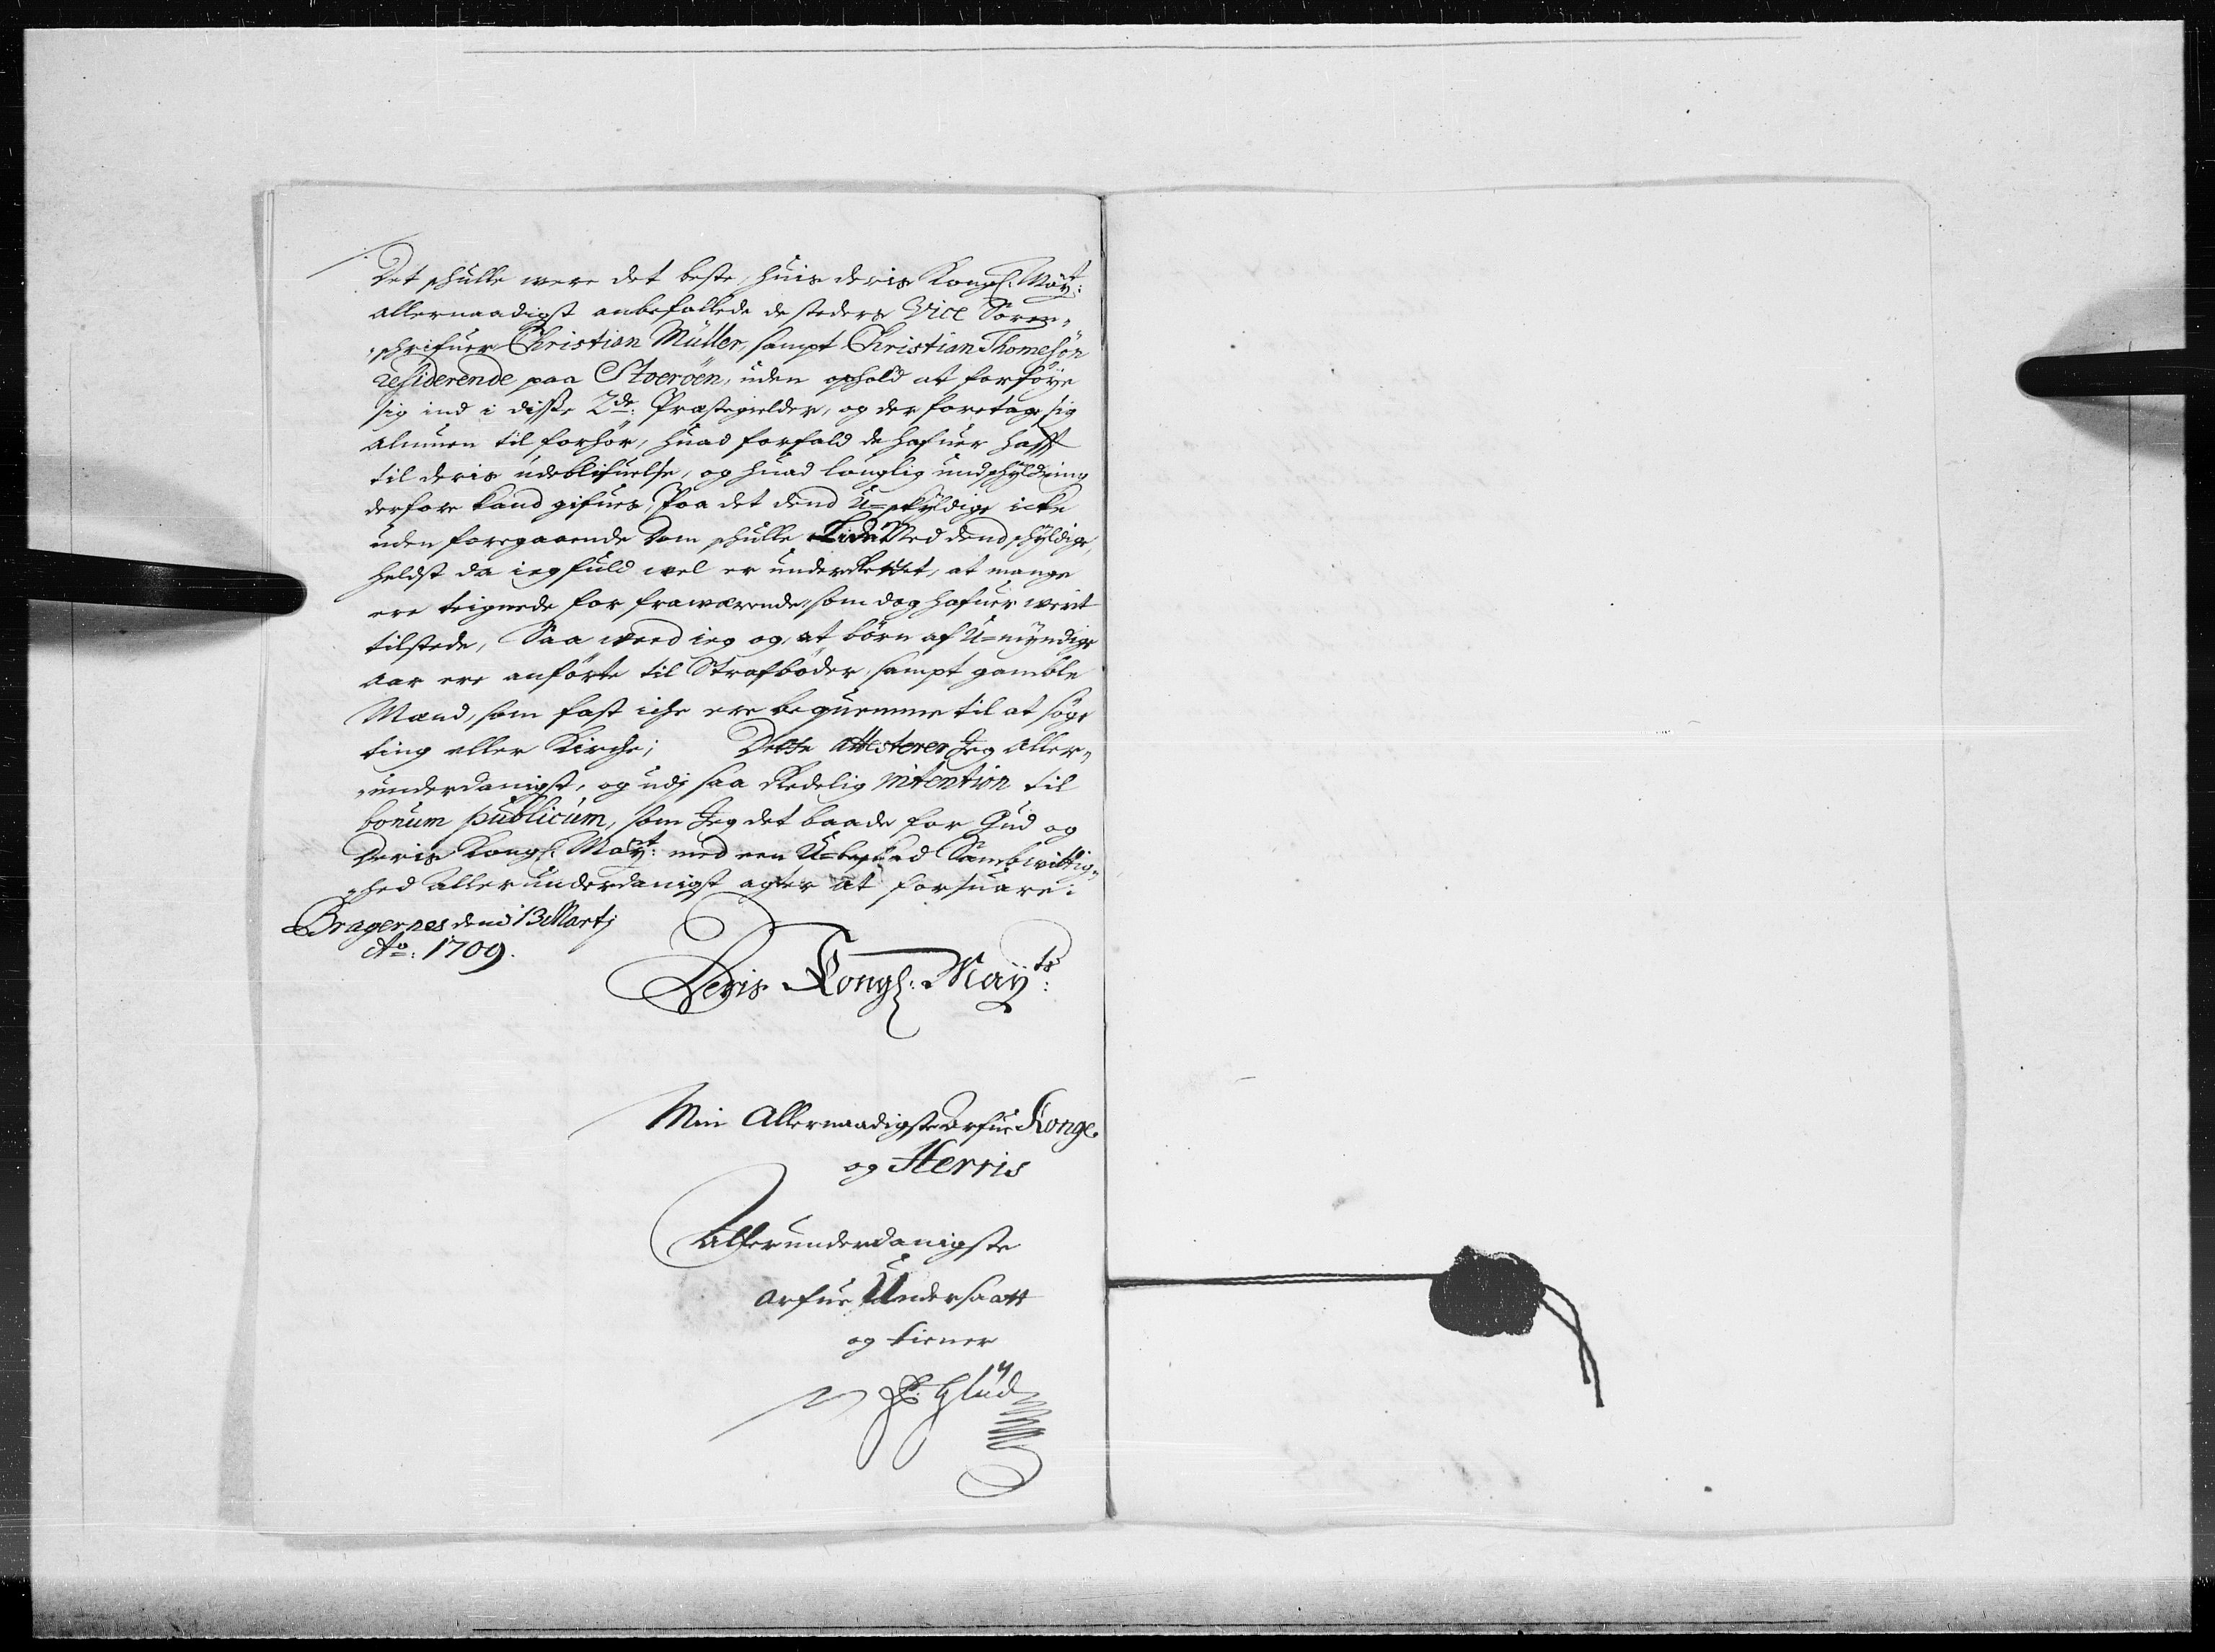 Det schulle were det beste, huis deris Kongl: Mayt:
allernaadigst anbefallede de steders Vice Soren-
schrifuer Christian Müller, sampt Christian Thomesön
residerende paa Stoeröen, uden ophold at forföye
sig ind i disse 2de: Præstegielder, og der foretage sig
almuen til forhör, huad forfald de hafuer hafft
til deris udeblifuelse, og huad louglig undschyldning
derfore kand gifues, Paa det dend U-skyldige icke
uden foregaaende dom schulle Lide Med dend schyldige,
heldst da ieg fuld vel er underRettet, at mange
ere teignede for frawærende, som dog hafuer werit
tilstede, Saa weed ieg og, at börn af U-myndige
aar ere anförte til Strafböder, sampt gamble
Mænd, som fast iche ere bequemme til at söge
ting eller Kirche; Dette attesterer Jeg aller-
underdanigst, og udj saa Redelig intention til
bonum publicum, som Jeg det baade for Gud og
Deris Kongl: Mayt: med een U-besmed Samwittig-
hed allerunderdanigst agter at forsuare:
Bragernes dend 13 Martj
Ao: 1709.
Deris Kongl: Mayts:
Min Allernaadigste Arfue Konge
og Herris
Allerunderdanigste
arfue Undersaatt
og tiener
Glud